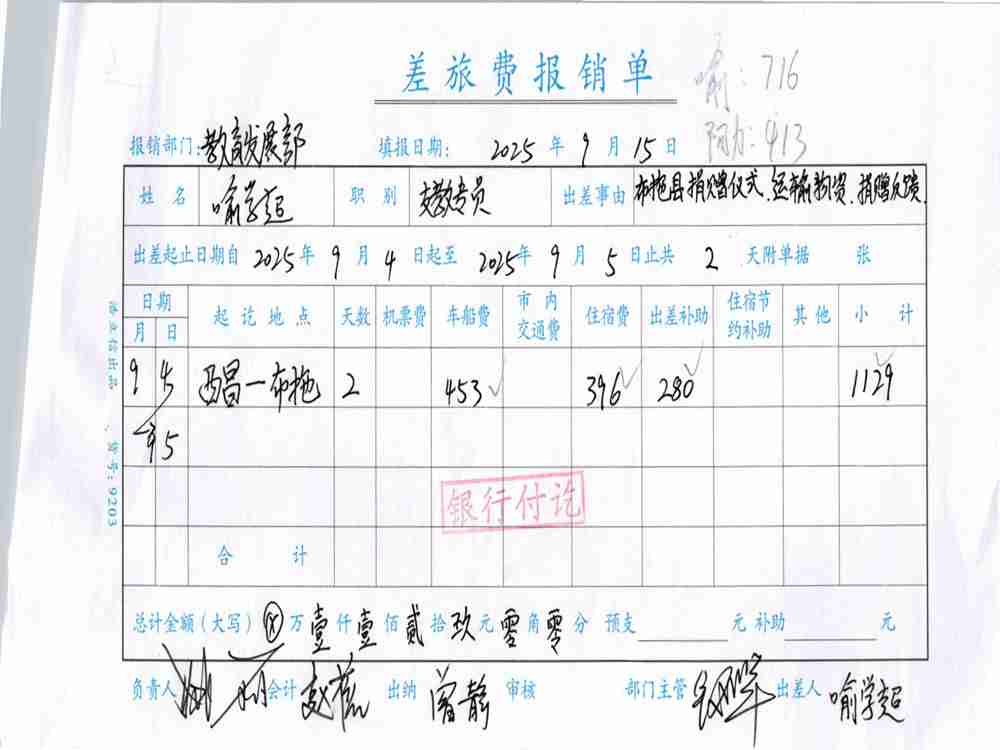 差旅费报销单
喻：716
413
报销部门：教育发展部 填报日期： 2025 年 9 月 15 日
姓名 喻学超 职别 支教专员 出差事由 布拖县捐赠仪式、运输物资、捐赠反馈.
出差起止日期自 2025 年 9 月 4 日起至 2025 年 9 月 5 日止共 2 天附单据 张
日期 起讫地点 天数 机票费 车船费 市内交通费 住宿费 出差补助 住宿节约补助 其他 小计
月 日
9 4 西昌一布拖 2 453 396 280 1129
5
银行付讫
合计
总计金额（大写） ⊗ 万 壹 仟 壹 佰 贰 拾 玖 元 零 角 零 分 预支 元 补助 元
负责人 会计 出纳 曾静 审核 部门主管 出差人 喻学超
货号：9203